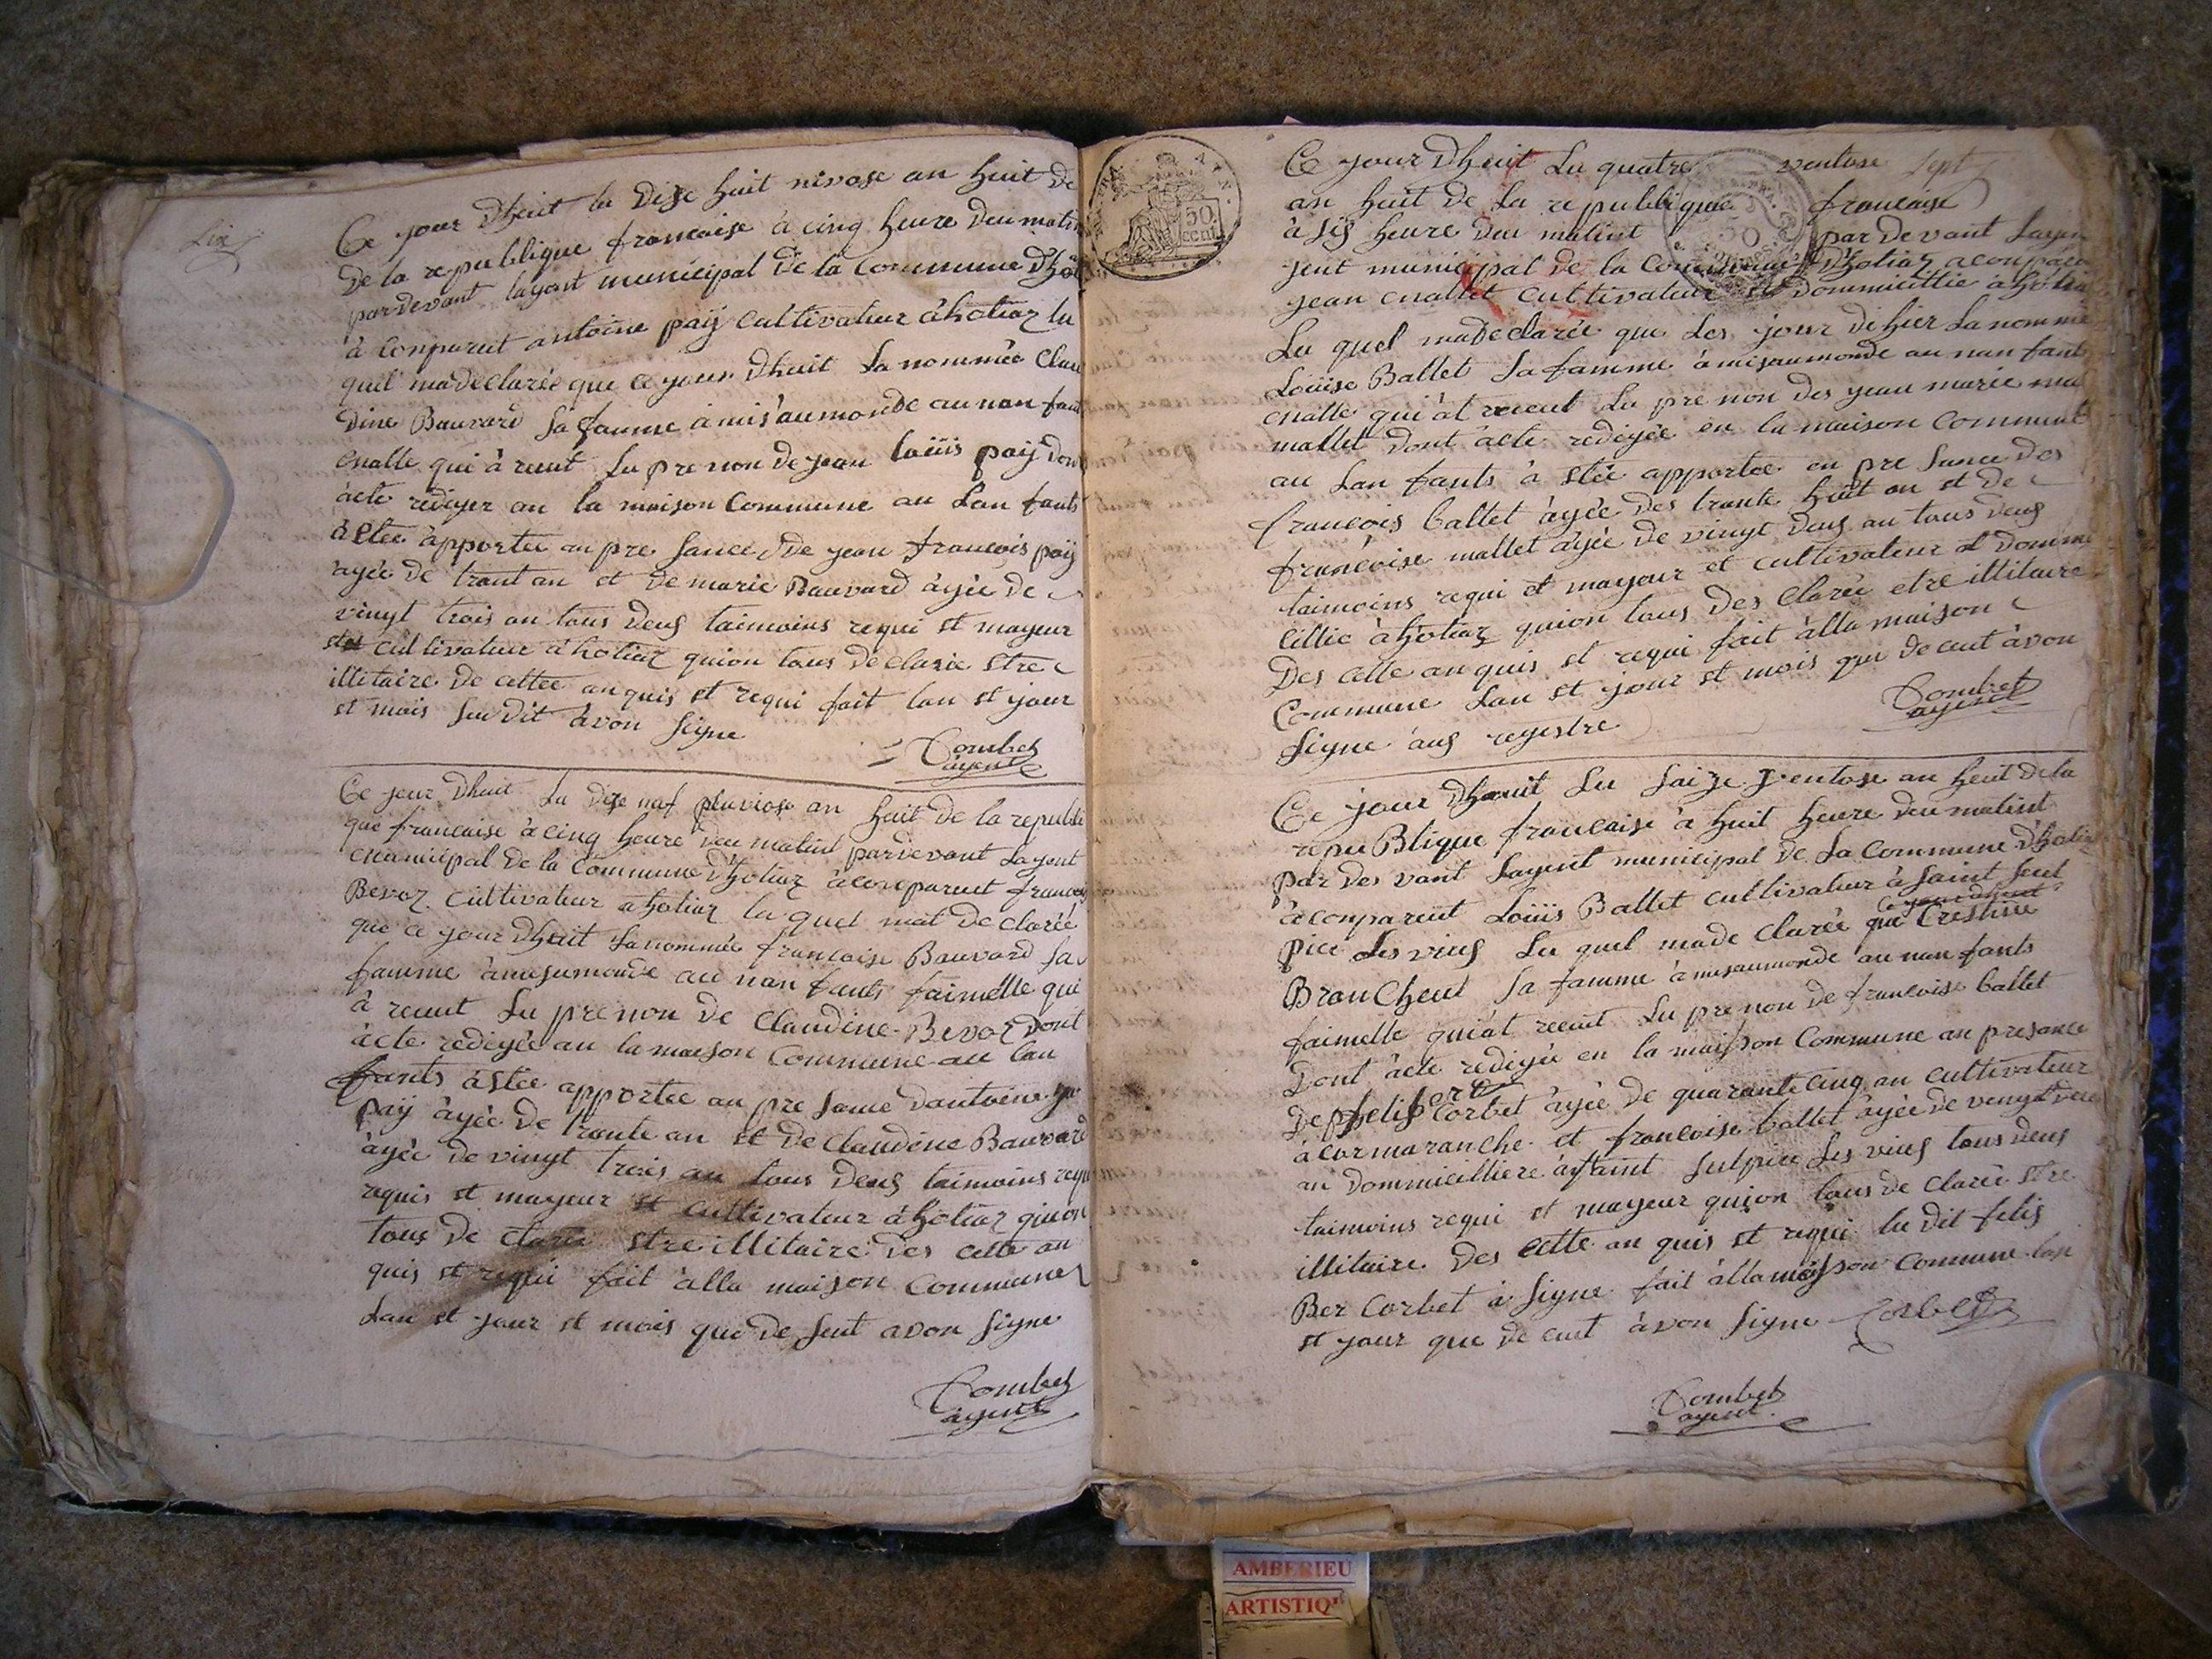 Six
Ce jour Dheuit la Dise huit nivose an huit de
De la republique francaise à cinq heure deu matin
pardevant lagent municipal De la Commune Dhot
à Conparut antoine paÿ cultivateur à hotiaz lu
quel madeclarée que ce jour Dhuit La nommée Clau
Dine Bauvard Sa famme à mis'aumonde au nan fant
malle qui à reut Lu pre non de jean loüis paÿ Dont
àcte rediger an la maison Commune au Lan fants
à Etee apportee an pre sance De jean francois paÿ
agée De trant an et De marie Bauvard àgée De
vingt trois an tous Deus taimoins requi et mayeur
cultivateur à hotiaz quion tous Déclarée Etre
illitaire De cettee anquis et requi fait lan et jour
et mois Sudit avon Signe
Combet
agent
Ce jour Dhuit La Dise naf pluviose an huit de la republi
que francaise à cinq heure deu matint pardevant Lagent
municipal De la Commune Dhotiaz àconparut francois
Bevoz cultivateur ahotiaz lu quel mat De clarée
que ce jour Dhuit La nommée francoise Bauvard Sa
famme àmisaumonde au nan fants faimelle qui
à recut Lu prenon De Claudine Bevoz Dont
àcte redigée an la maison Commune au lan
fants àstée apportee an pre sance Dantoine
paÿ àgée De trante an et De Claudine Bauvard
àgée De vingt trois an tous Deus taimoins requi
requis et mayeur et cultivateur àhotiaz quion
tous De clarée Etre illitaire Des cette an
quis et requi fait àlla maison Commune
Lan et jour et mois que De sent avon Signe
Combet
agent
50
cent
Sept
Ce jour Dheuit Lu quatre ventose
an huit De La republique francaise
à Sis heure Deu matint par Devant Layen
jent municipal De la Commune Dhotiaz aconparu
jean mallet cultivateur et Dommicillie àhotia
Lu quel madeclarée que Les jour Dehier La nommé
Loüise Ballet Sa famme à misaumonde au nan fants
malle qui àt receut Lu pre non Des jean marie mal
mallet Dont àcte redigée en la maison Commune
au Lan fants à Etée apportee en pre Sance Des
francois ballet àgée Des trante huit an et De
francoise mallet àgée De vingt Deus an tous Deus
taimoins requi et mayeur et cultivateur et Domme
cillie àhotiaz quion tous Des Clarée etre illitaire
Des cette an quis et requi fait àlla maison
Commune Lan et jour et mois que De cent àvon
Signe àus registre
Combet
agent
Ce jour Dheuit Lu Saize ventose an heuit De la
republique francaise à huit heure Deu matint
par Des vant Lagent municipal De La Commune Dhotia
àconparut Loüis Ballet cultivateur à Saint Seul
pice Les vieus Lu quel made clarée que Crestine
Brancheut Sa famme àmisaumonde au nan fants
faimelle quiàt receut Lu pre non De francoise ballet
Dont àcte redigée en la maison Commune an presance
De Corbet àgée De quarante cinq an cultivateur
à cormaranche et francoise ballet àgée De vingt
an Dommicilliere àsaint Sulpice Les vieus tous Deus
taimoins requi et mayeur quion tous De clarée Etre
illitaire Des cette an quis et requi lu Dit felis
Ber Corbet à Signe fait àlla maison Commune lan
et jour que De cent àvon Signe Corbet
Combet
agent
AMBERIEU
ARTISTIQ